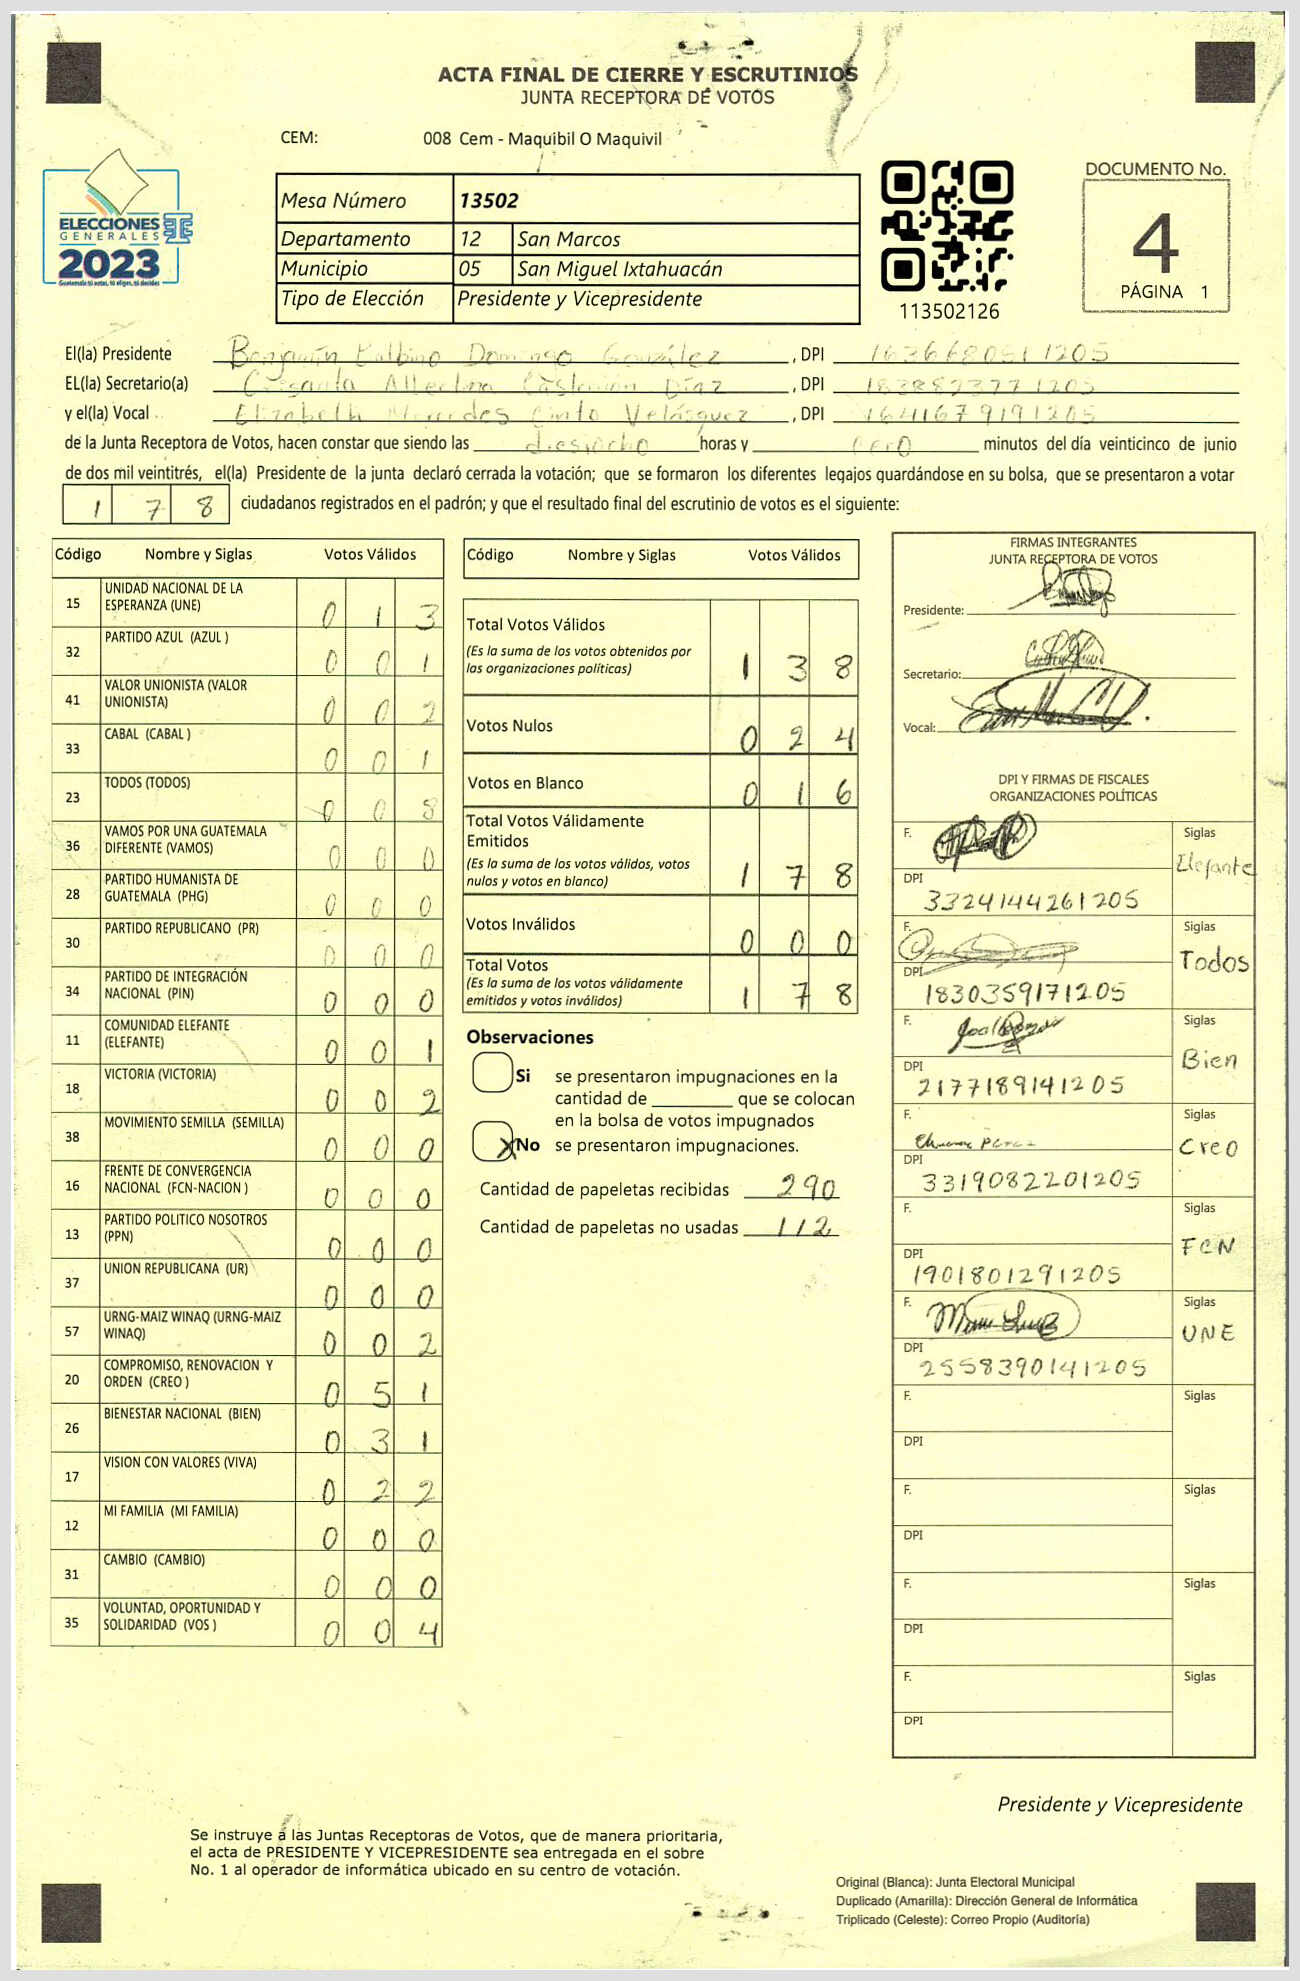 ACTA FINAL DE CIERRE Y ESCRUTINIOS
JUNTA RECEPTORA DE VOTOS
CEM: 008 Cem - Maquibil O Maquivil
ELECCIONES
GENERALES
2023
Guatemala tú votas, tú eliges, tú decides
Mesa Número 13502
Departamento 12 San Marcos
Municipio 05 San Miguel Ixtahuacán
Tipo de Elección Presidente y Vicepresidente
113502126
DOCUMENTO No.
4
PÁGINA 1
El(la) Presidente Benjamín Balbino Domingo González , DPI 1636680511205
EL(la) Secretario(a) Albertina Castañón Díaz , DPI 1838823771205
y el(la) Vocal Elizabeth Mercedes Cinto Velásquez , DPI 1641679191205
de la Junta Receptora de Votos, hacen constar que siendo las dieciocho horas y cero minutos del día veinticinco de junio
de dos mil veintitrés, el(la) Presidente de la junta declaró cerrada la votación; que se formaron los diferentes legajos guardándose en su bolsa, que se presentaron a votar
1 7 8 ciudadanos registrados en el padrón; y que el resultado final del escrutinio de votos es el siguiente:
Código Nombre y Siglas Votos Válidos
15 UNIDAD NACIONAL DE LA ESPERANZA (UNE) 0 1 3
32 PARTIDO AZUL (AZUL ) 0 0 1
41 VALOR UNIONISTA (VALOR UNIONISTA) 0 0 2
33 CABAL (CABAL ) 0 0 1
23 TODOS (TODOS) 0 0 8
36 VAMOS POR UNA GUATEMALA DIFERENTE (VAMOS) 0 0 0
28 PARTIDO HUMANISTA DE GUATEMALA (PHG) 0 0 0
30 PARTIDO REPUBLICANO (PR) 0 0 0
34 PARTIDO DE INTEGRACIÓN NACIONAL (PIN) 0 0 0
11 COMUNIDAD ELEFANTE (ELEFANTE) 0 0 1
18 VICTORIA (VICTORIA) 0 0 2
38 MOVIMIENTO SEMILLA (SEMILLA) 0 0 0
16 FRENTE DE CONVERGENCIA NACIONAL (FCN-NACION ) 0 0 0
13 PARTIDO POLITICO NOSOTROS (PPN) 0 0 0
37 UNION REPUBLICANA (UR) 0 0 0
57 URNG-MAIZ WINAQ (URNG-MAIZ WINAQ) 0 0 2
20 COMPROMISO, RENOVACION Y ORDEN (CREO ) 0 5 1
26 BIENESTAR NACIONAL (BIEN) 0 3 1
17 VISION CON VALORES (VIVA) 0 2 2
12 MI FAMILIA (MI FAMILIA) 0 0 0
31 CAMBIO (CAMBIO) 0 0 0
35 VOLUNTAD, OPORTUNIDAD Y SOLIDARIDAD (VOS ) 0 0 4
Código Nombre y Siglas Votos Válidos
Total Votos Válidos 1 3 8
(Es la suma de los votos obtenidos por
las organizaciones políticas)
Votos Nulos 0 2 4
Votos en Blanco 0 1 6
Total Votos Válidamente
Emitidos 1 7 8
(Es la suma de los votos válidos, votos
nulos y votos en blanco)
Votos Inválidos 0 0 0
Total Votos 1 7 8
(Es la suma de los votos válidamente
emitidos y votos inválidos)
Observaciones
Si se presentaron impugnaciones en la
cantidad de ________ que se colocan
en la bolsa de votos impugnados
X No se presentaron impugnaciones.
Cantidad de papeletas recibidas 290
Cantidad de papeletas no usadas 112
FIRMAS INTEGRANTES
JUNTA RECEPTORA DE VOTOS
Presidente:
Secretario:
Vocal:
DPI Y FIRMAS DE FISCALES
ORGANIZACIONES POLÍTICAS
F. Siglas Elefante
DPI 3324144261205
F. Siglas Todos
DPI 1830359171205
F. Siglas Bien
DPI 2177189141205
F. Siglas Creo
DPI 3319082201205
F. Siglas FCN
DPI 1901801291205
F. Siglas UNE
DPI 2558390141205
F. Siglas
DPI
F. Siglas
DPI
F. Siglas
DPI
F. Siglas
DPI
Presidente y Vicepresidente
Se instruye a las Juntas Receptoras de Votos, que de manera prioritaria,
el acta de PRESIDENTE Y VICEPRESIDENTE sea entregada en el sobre
No. 1 al operador de informática ubicado en su centro de votación.
Original (Blanca): Junta Electoral Municipal
Duplicado (Amarilla): Dirección General de Informática
Triplicado (Celeste): Correo Propio (Auditoría)